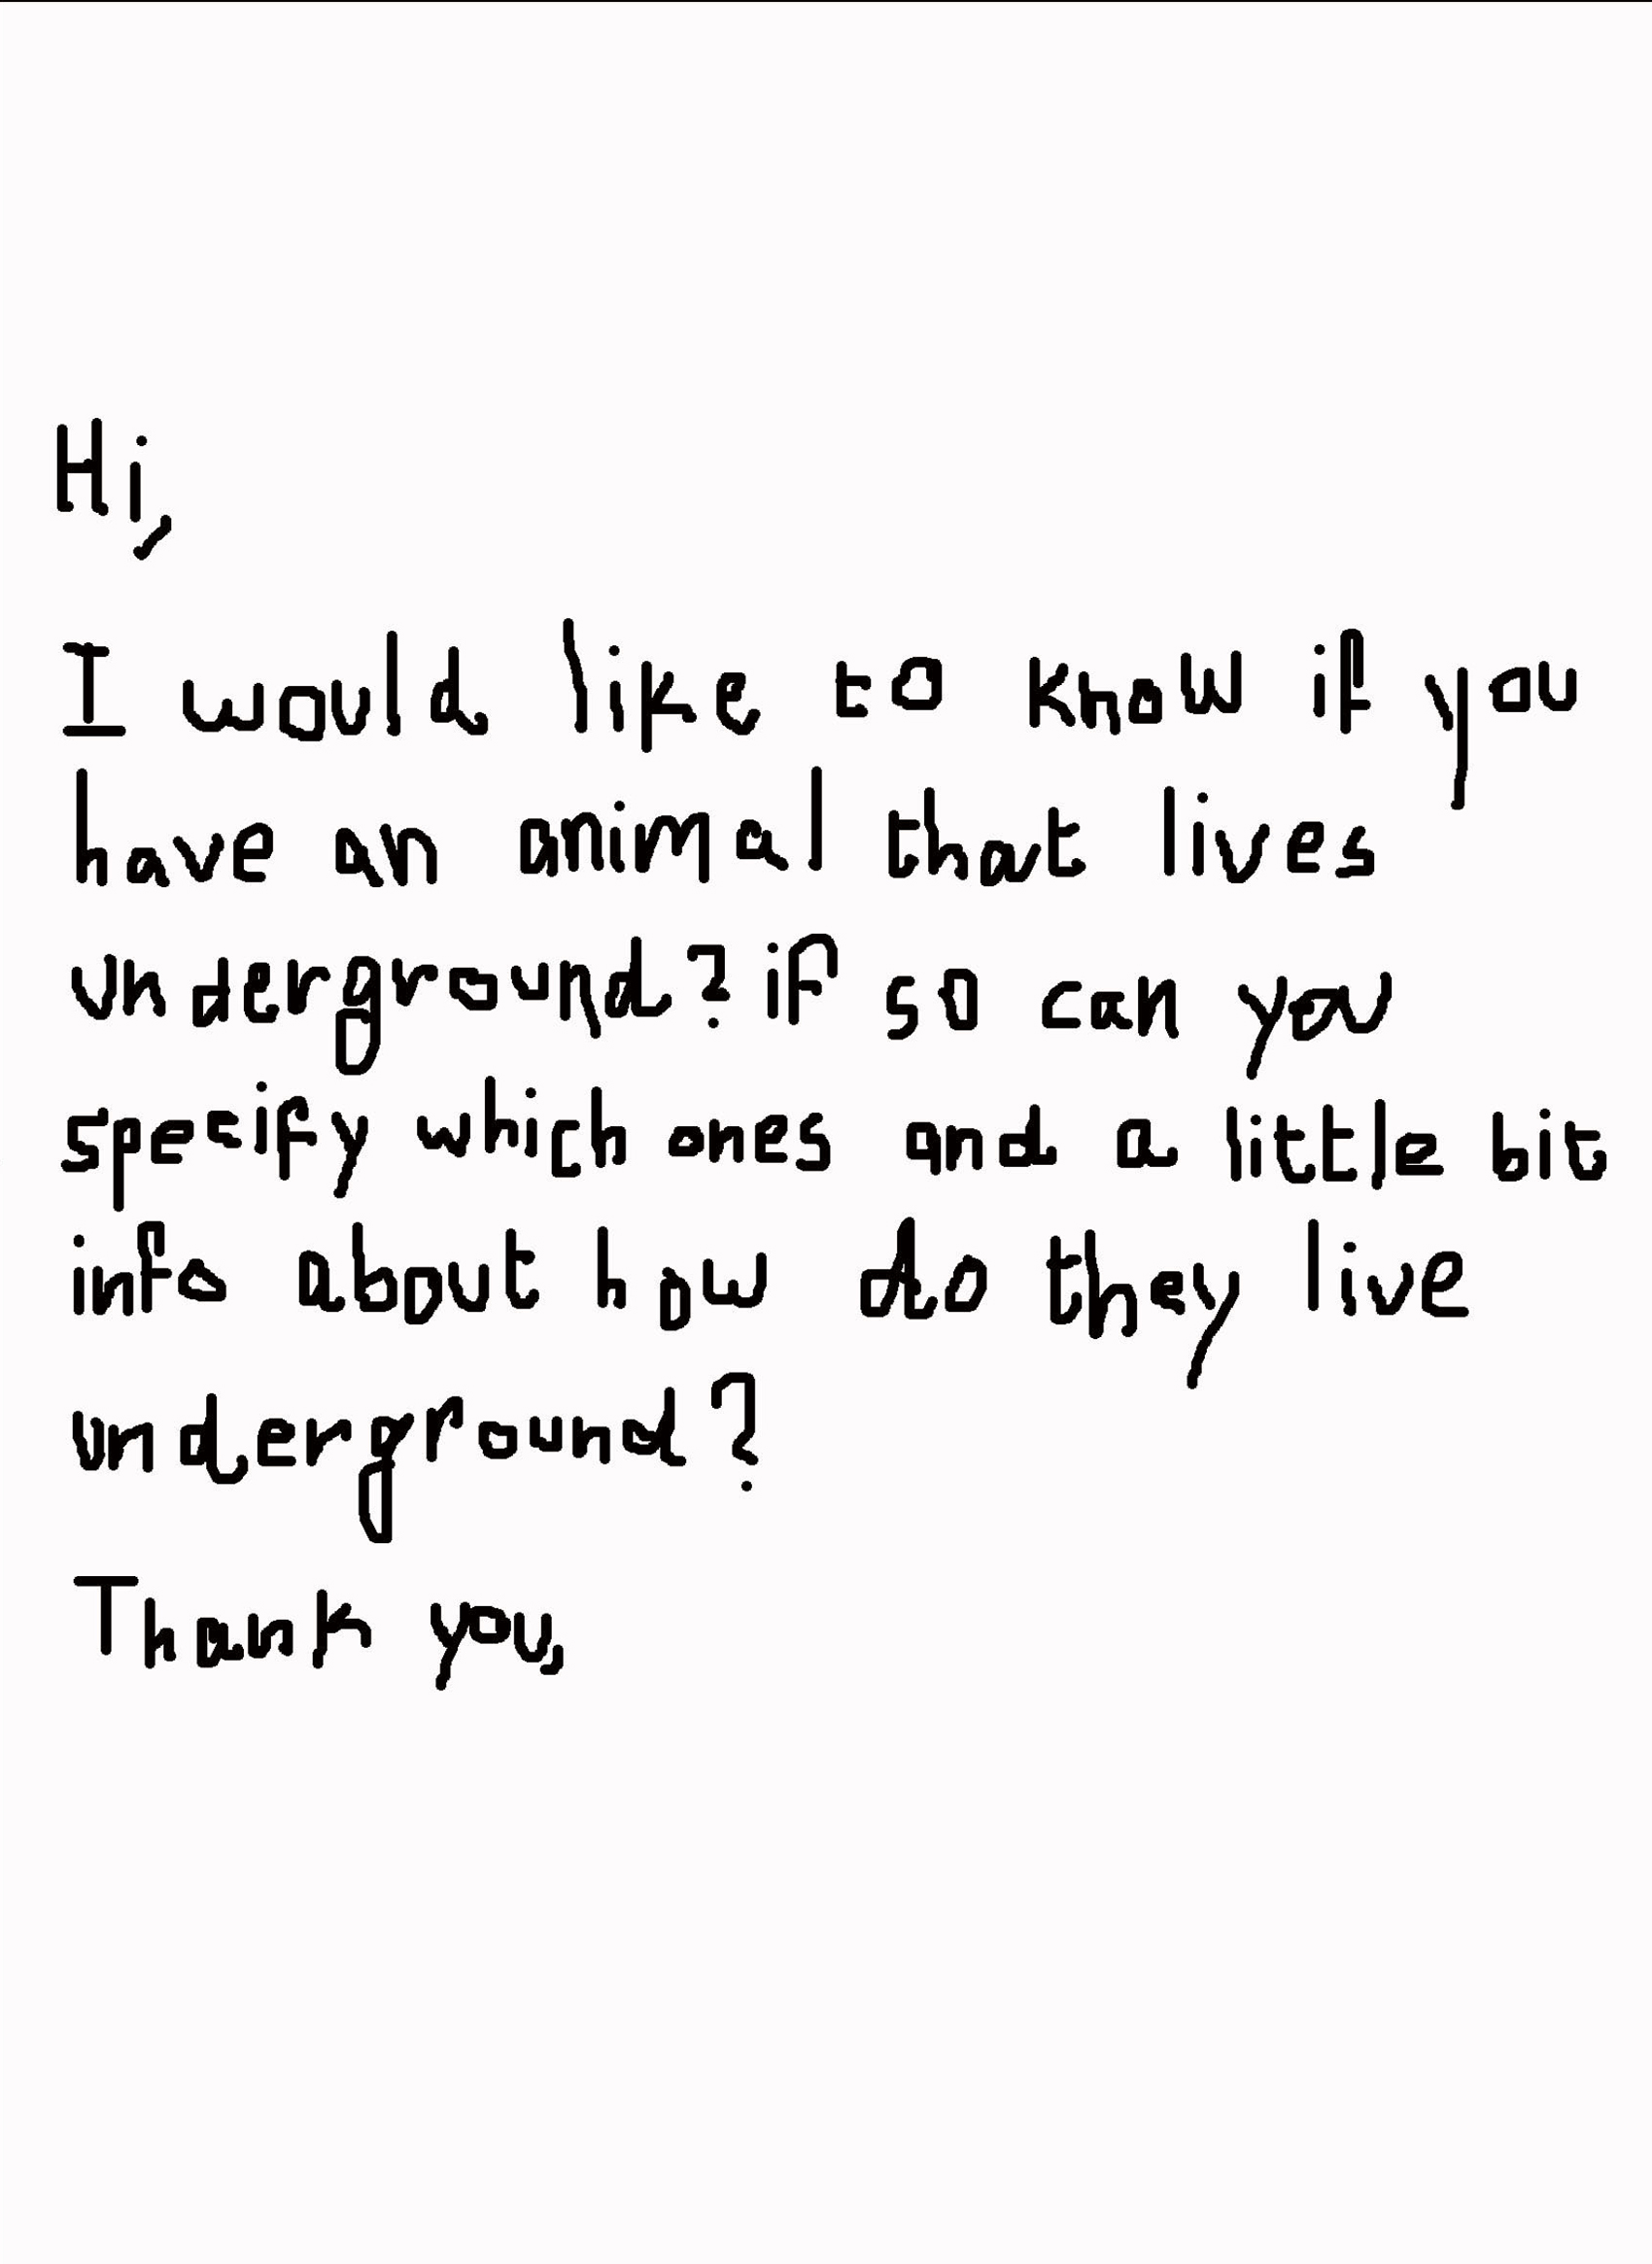 Hi,
I would like to know if you
have an animal that lives
underground? if so can you
specify which ones and a little bit
info about how do they live
underground?
Thank you,